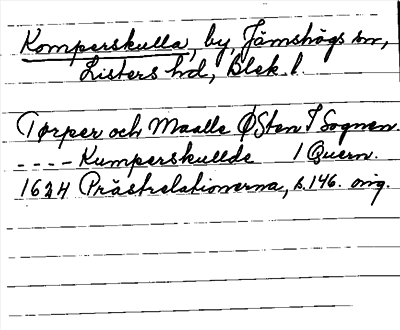 Komperskulla, by, Jämshögs sn,
Listers hd, Blek. l.
Tørper och Maalle ØSten I Sognen.
---- Kumperskullde 1 Quern.
1624 Prästrelationerna, s. 146. orig.